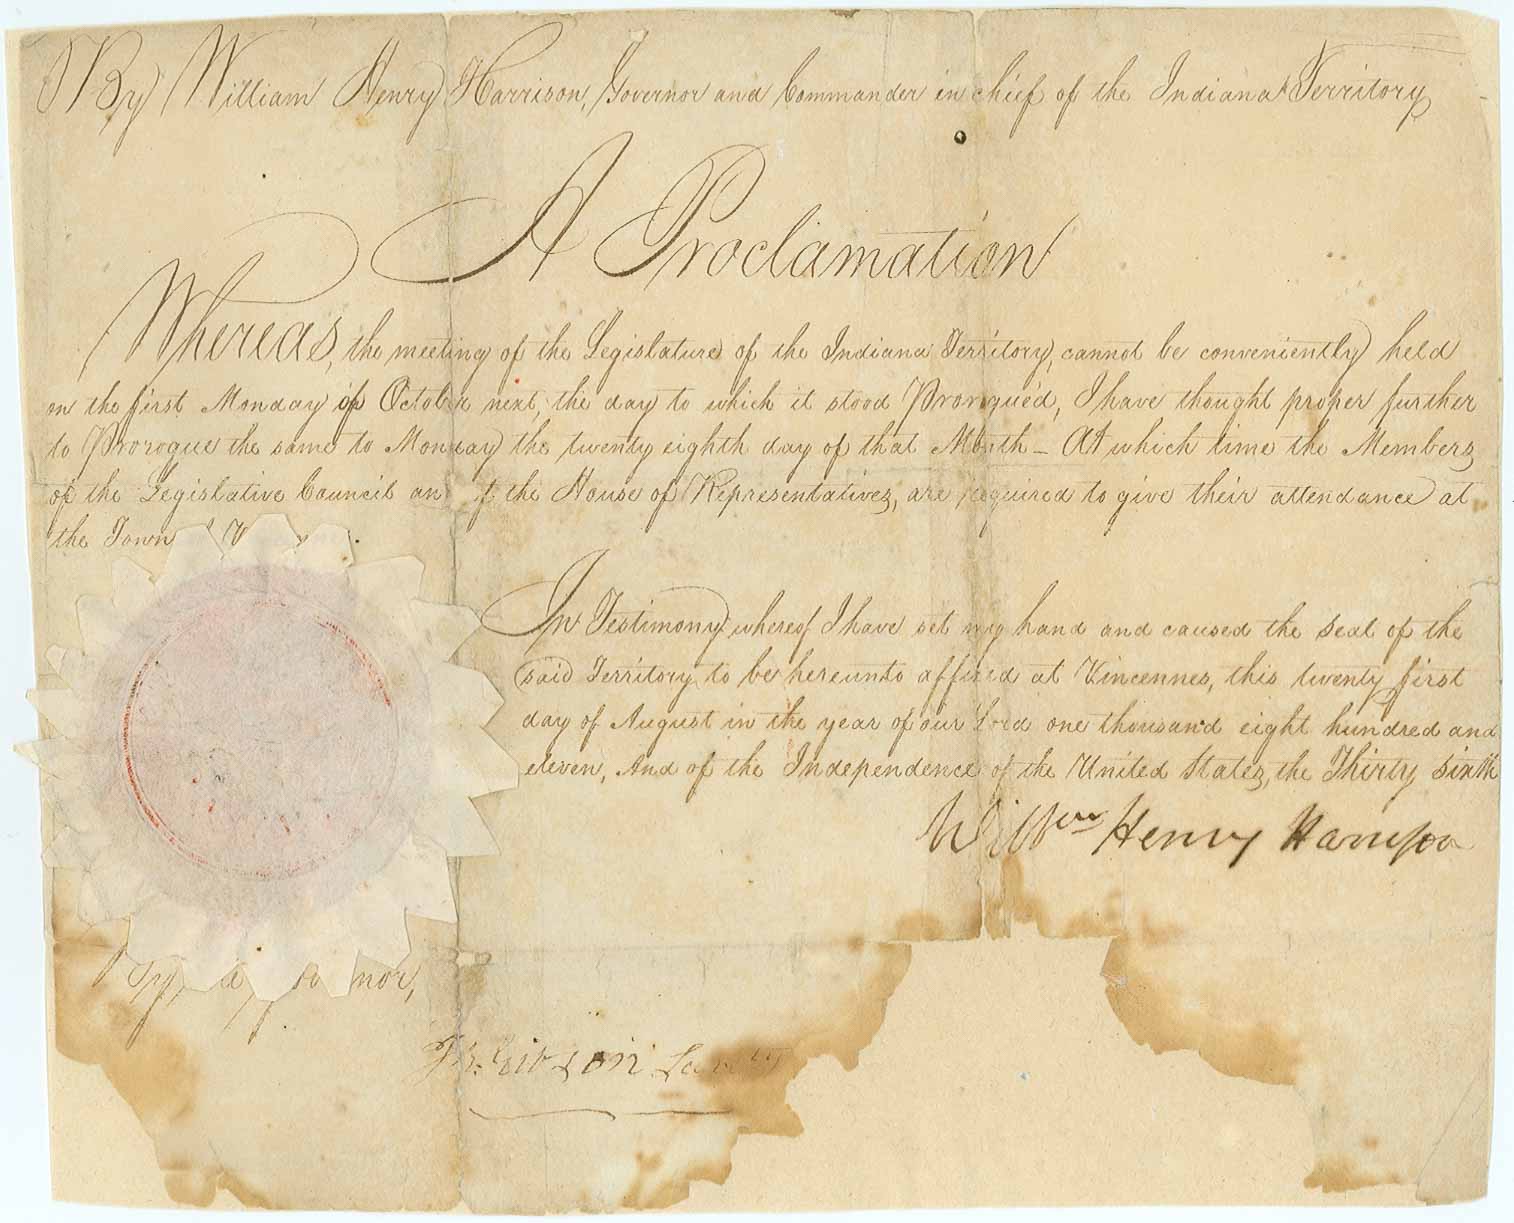 By William Henry Harrison, Governor and Commander in chief of the Indiana Territory
A Proclamation
Whereas, the meeting of the Legislature of the Indiana Territory, cannot be conveniently held
on the first Monday of October next, the day to which it stood Prorogued, I have thought proper further
to Prorogue the same to Monday the twenty eighth day of that Month – At which time the Members
of the Legislative Council an of the House of Representatives, are required to give their attendance at
the Town
In Testimony whereof I have set my hand and caused the seal of the
said Territory to be hereunto affixed at Vincennes, this twenty first
day of August in the year of our Lord one thousand eight hundred and
eleven, And of the Independence of the United States, the Thirty sixth
Willm Henry Harrison
By nor,
Jn. Gibson